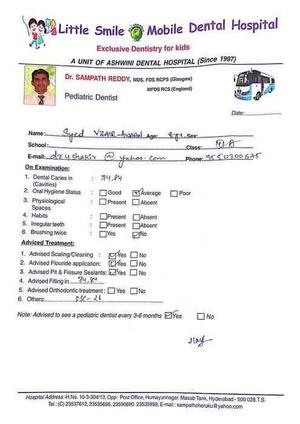 Little Smile Mobile Dental Hospital
Exclusive Dentistry for kids
A UNIT OF ASHWINI DENTAL HOSPITAL (Since 1997)
Dr. SAMPATH REDDY, MDS, FDS RCPS (Glasgow)
MFDS RCS (England)
Pediatric Dentist
Date:
Name: Syed Age: Sex
School: Class:
E-mail: @yahoo.com Phone:
On Examination:
1. Dental Caries in : 74,84
(Cavities)
2. Oral Hygiene Status : Good Average Poor
3. Physiological : Present Absent
Spaces
4. Habits : Present Absent
5. Irregular teeth : Present Absent
6. Brushing twice : Yes No
Adviced Treatment:
1. Advised Scaling/Cleaning : Yes No
2. Advised Flouride application: Yes No
3. Advised Pit & Fissure Sealants: Yes No
4. Advised Filling in 74,84
5. Advised Orthodontic treatment : Yes No
6. Others:
Note: Advised to see a pediatric dentist every 3-6 months Yes No
Hospital Address:-H.No. 10-3-304/13, Opp: Post Office, Humayunnagar, Masab Tank, Hyderabad - 500 028.T.S.
Tel.:(C) 23537612, 23535656, 23590690, 23535858, E-mail: